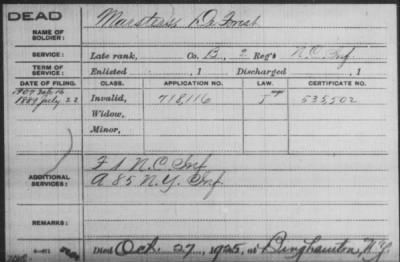 DEAD
NAME OF SOLDIER: Marsters, De Forest
SERVICE: Late rank, Co. B, 2 Reg't N.C. Inf.
TERM OF SERVICE: Enlisted , 1 Discharged , 1
DATE OF FILING. CLASS. APPLICATION NO. LAW. CERTIFICATE NO.
1889 July 22 Invalid, 718,116 535,502
Widow,
Minor,
ADDITIONAL SERVICES: F 1 N.C. Inf
A 85 N.Y. Inf
REMARKS:
Died Oct. 27, 1925, at Binghamton, N.Y.